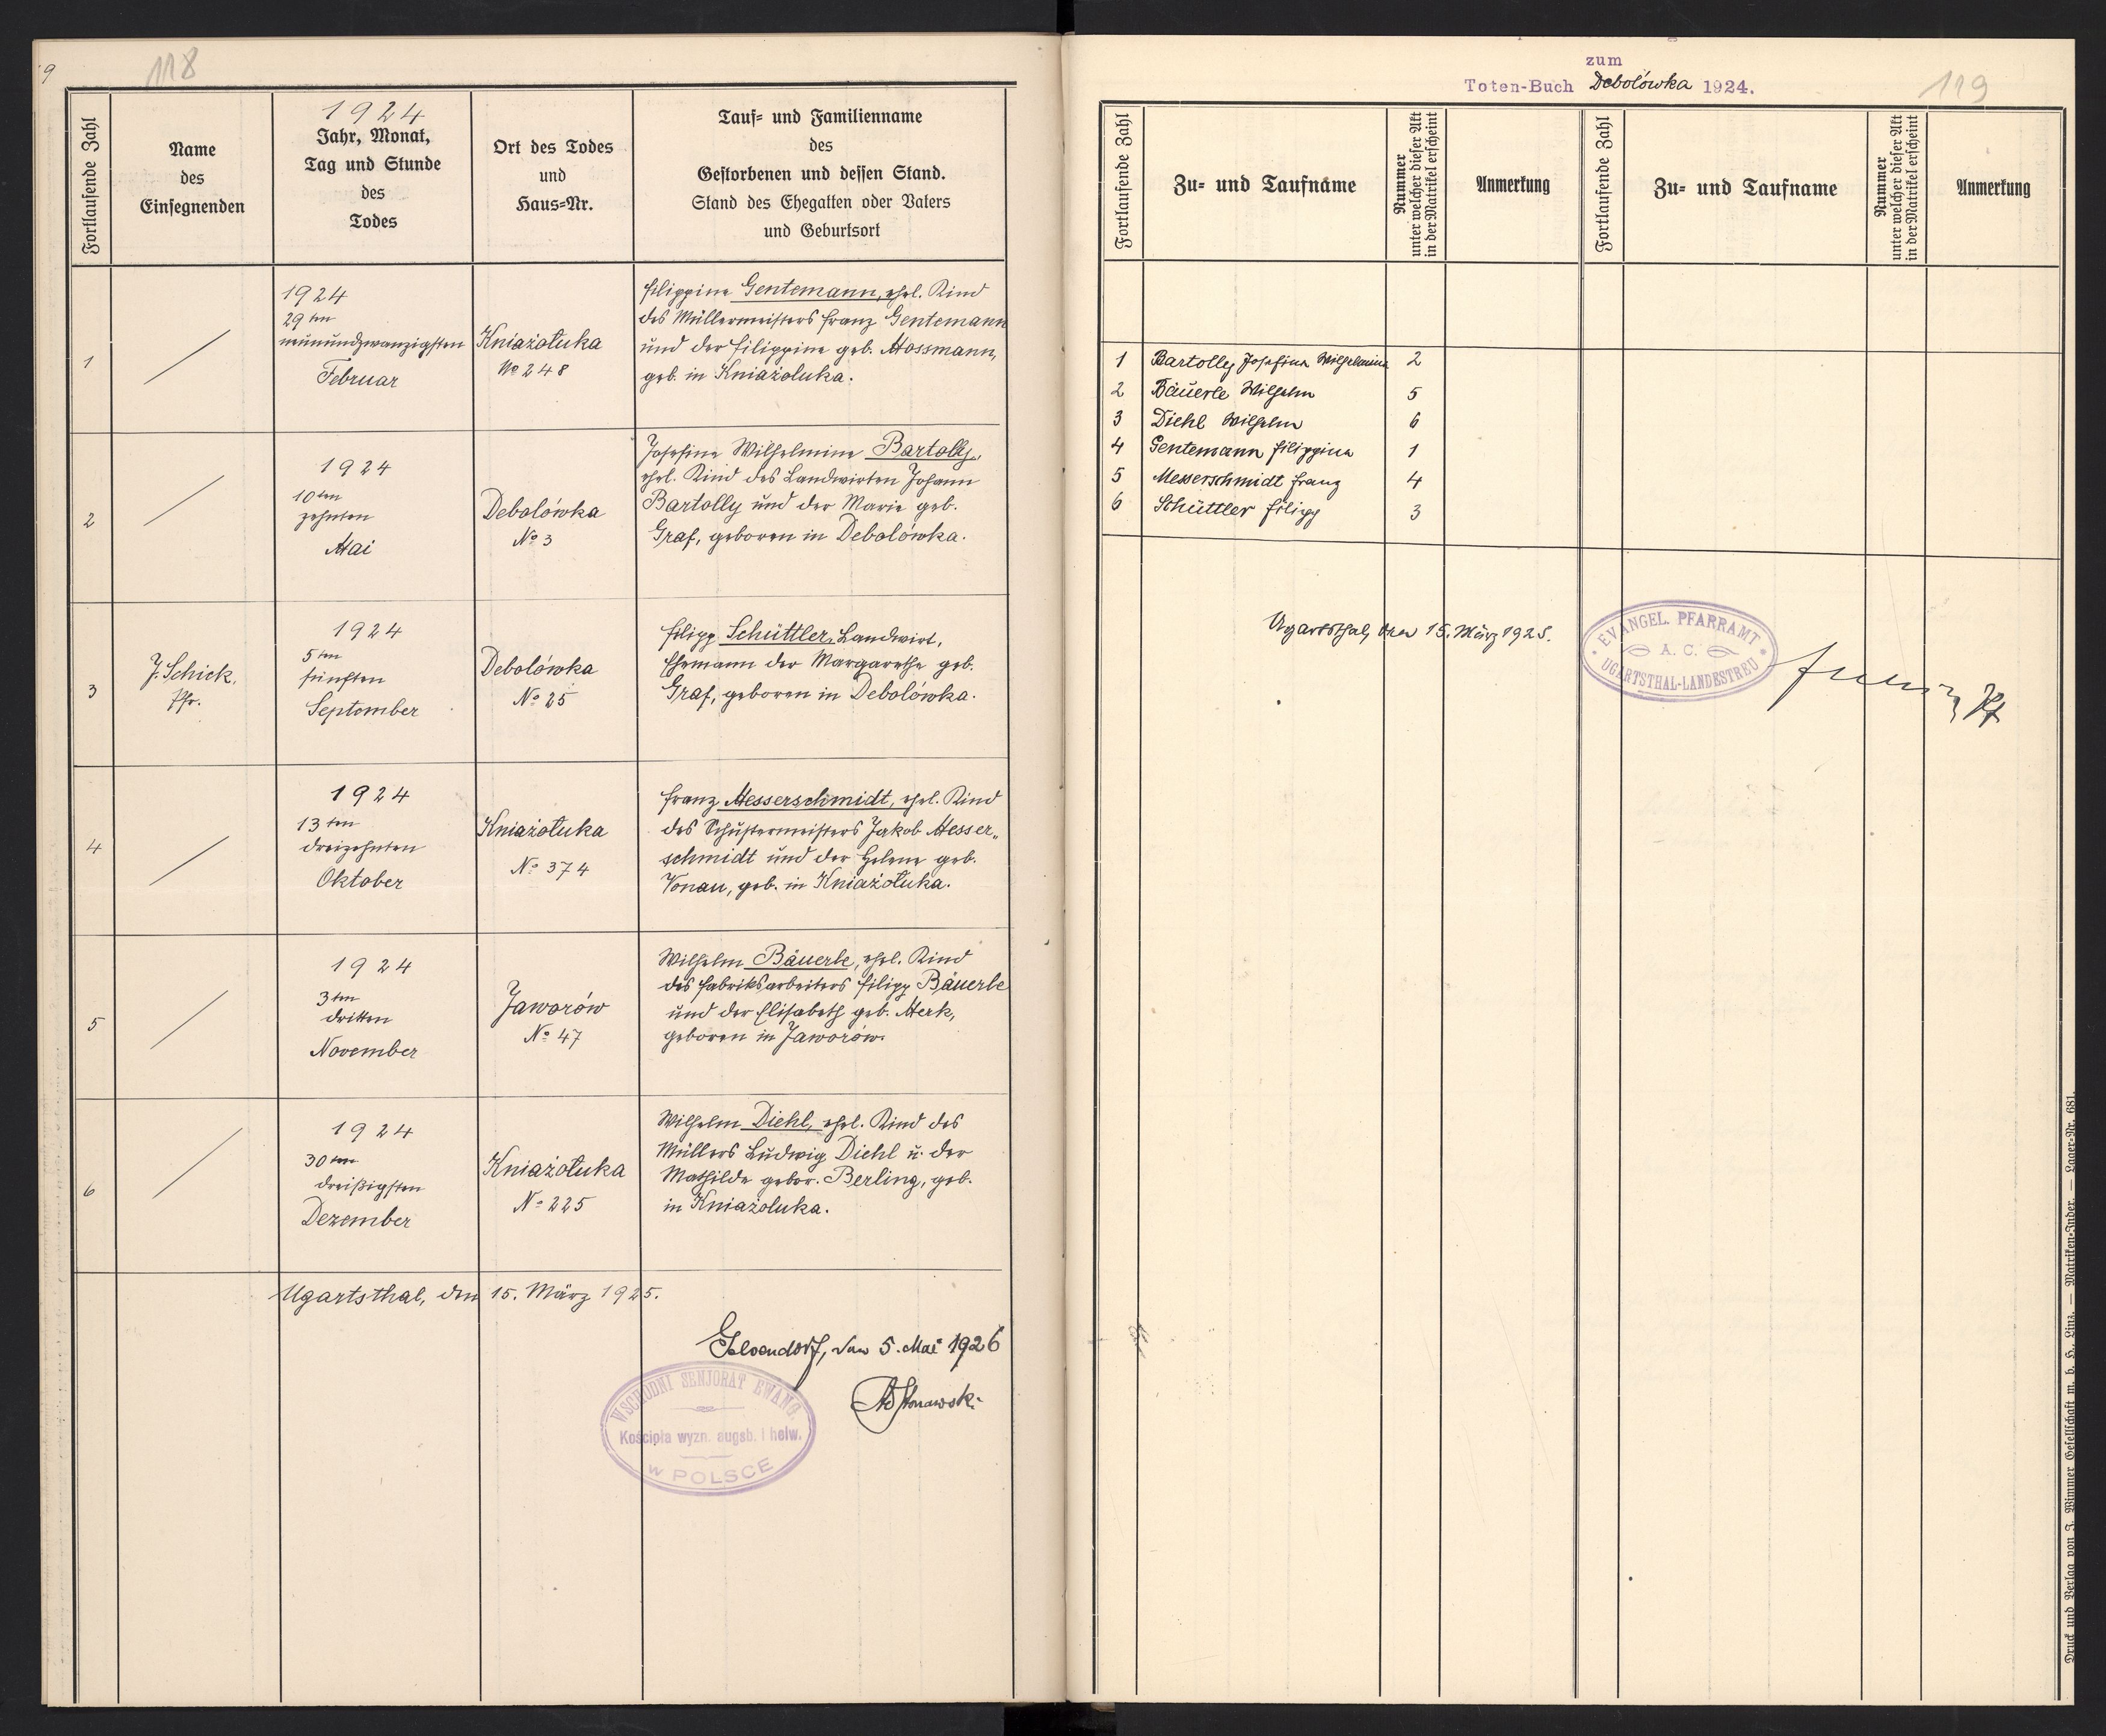 118
9
Fortlaufende Zahl
Name
des
Einsegnenden
1924
Jahr, Monat,
Tag und Stunde
des
Todes
Ort des Todes
und
Haus=Nr.
Tauf= und Familienname
des
Gestorbenen und dessen Stand.
Stand des Ehegatten oder Vaters
und Geburtsort
1
1924
29ten
neunundzwanzigsten
Februar
Kniażołuka
No 248
Filippine Gentemann, ehel. Kind
des Müllermeisters Franz Gentemann
und der Filippine geb. Mossmann,
geb. in Kniażoluka.
2
1924
10ten
zehnten
Mai
Debolówka
No 3
Josefine Wilhelmine Bartolly,
ehel. Kind des Landwirten Johann
Bartolly und der Marie geb.
Graf, geboren in Debolówka.
3
J. Schick,
Pfr.
1924
5ten
fünften
September
Debolówka
No 25
Filipp Schüttler, Landwirt,
Ehemann der Margarethe geb.
Graf, geboren in Debolówka.
4
1924
13ten
dreizehnten
Oktober
Kniażołuka
No 374
Franz Messerschmidt, ehel. Kind
des Schustermeisters Jakob Messer„
schmidt und der Helene geb.
Vonau, geb. in Kniażołuka.
5
1924
3ten
dritten
November
Jaworów
No 47
Wilhelm Bäuerle, ehel. Kind
des Fabriksarbeiters Filipp Bäuerle
und der Elisabeth geb. Merk,
geboren in Jaworów.
6
1924
30ten
dreißigsten
Dezember
Kniażołuka
No 225
Wilhelm Diehl, ehel. Kind des
Müllers Ludwig Diehl u. der
Mathilde gebor. Berling, geb.
in Kniażoluka.
Ugartsthal, den 15. März 1925.
Gelsendorf, den 5. Mai 1926
WSCHODNI SENJORAT EWANG.
Kościoła wyzn. augsb. i helw.
W POLSCE
zum
Toten-Buch Debolówka 1924.
119
Fortlaufende Zahl
Zu= und Taufname
Nummer
unter welcher dieser Akt
in der Matrikel erscheint
Anmerkung
Fortlaufende Zahl
Zu= und Taufname
Nummer
unter welcher dieser Akt
in der Matrikel erscheint
Anmerkung
1 Bartolly Josefine Wilhelmine 2
2 Bäuerle Wilhelm 5
3 Diehl Wilhelm 6
4 Gentemann Filippine 1
5 Messerschmidt Franz 4
6 Schüttler Filipp 3
Ugartsthal, den 15. März 1925.
EVANGEL. PFARRAMT
A. C.
UGARTSTHAL-LANDESTREU
Druck und Verlag von J. Wimmer Gesellschaft m. b. H., Linz. — Matriken-Index. — Lager-Nr. 681.